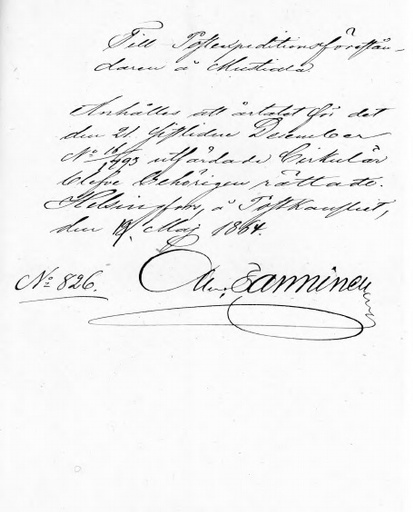 Till Postexpeditionsförestån-
daren å Mustiala
Anhålles att årtalet för det
den 21. sistlidne December
No 16/1,793 utfärdade Cirkulär
blefve behörigen rättade.
Helsingfors, å Postkontoret,
den 19. Maj 1864.
No 826.
Alex. Fanninen